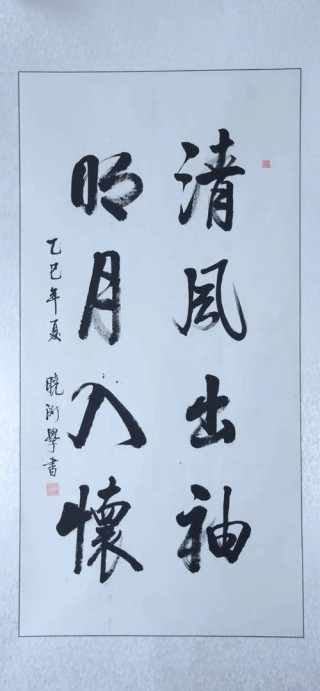 清風出袖
明月入懷
乙巳年夏 學書